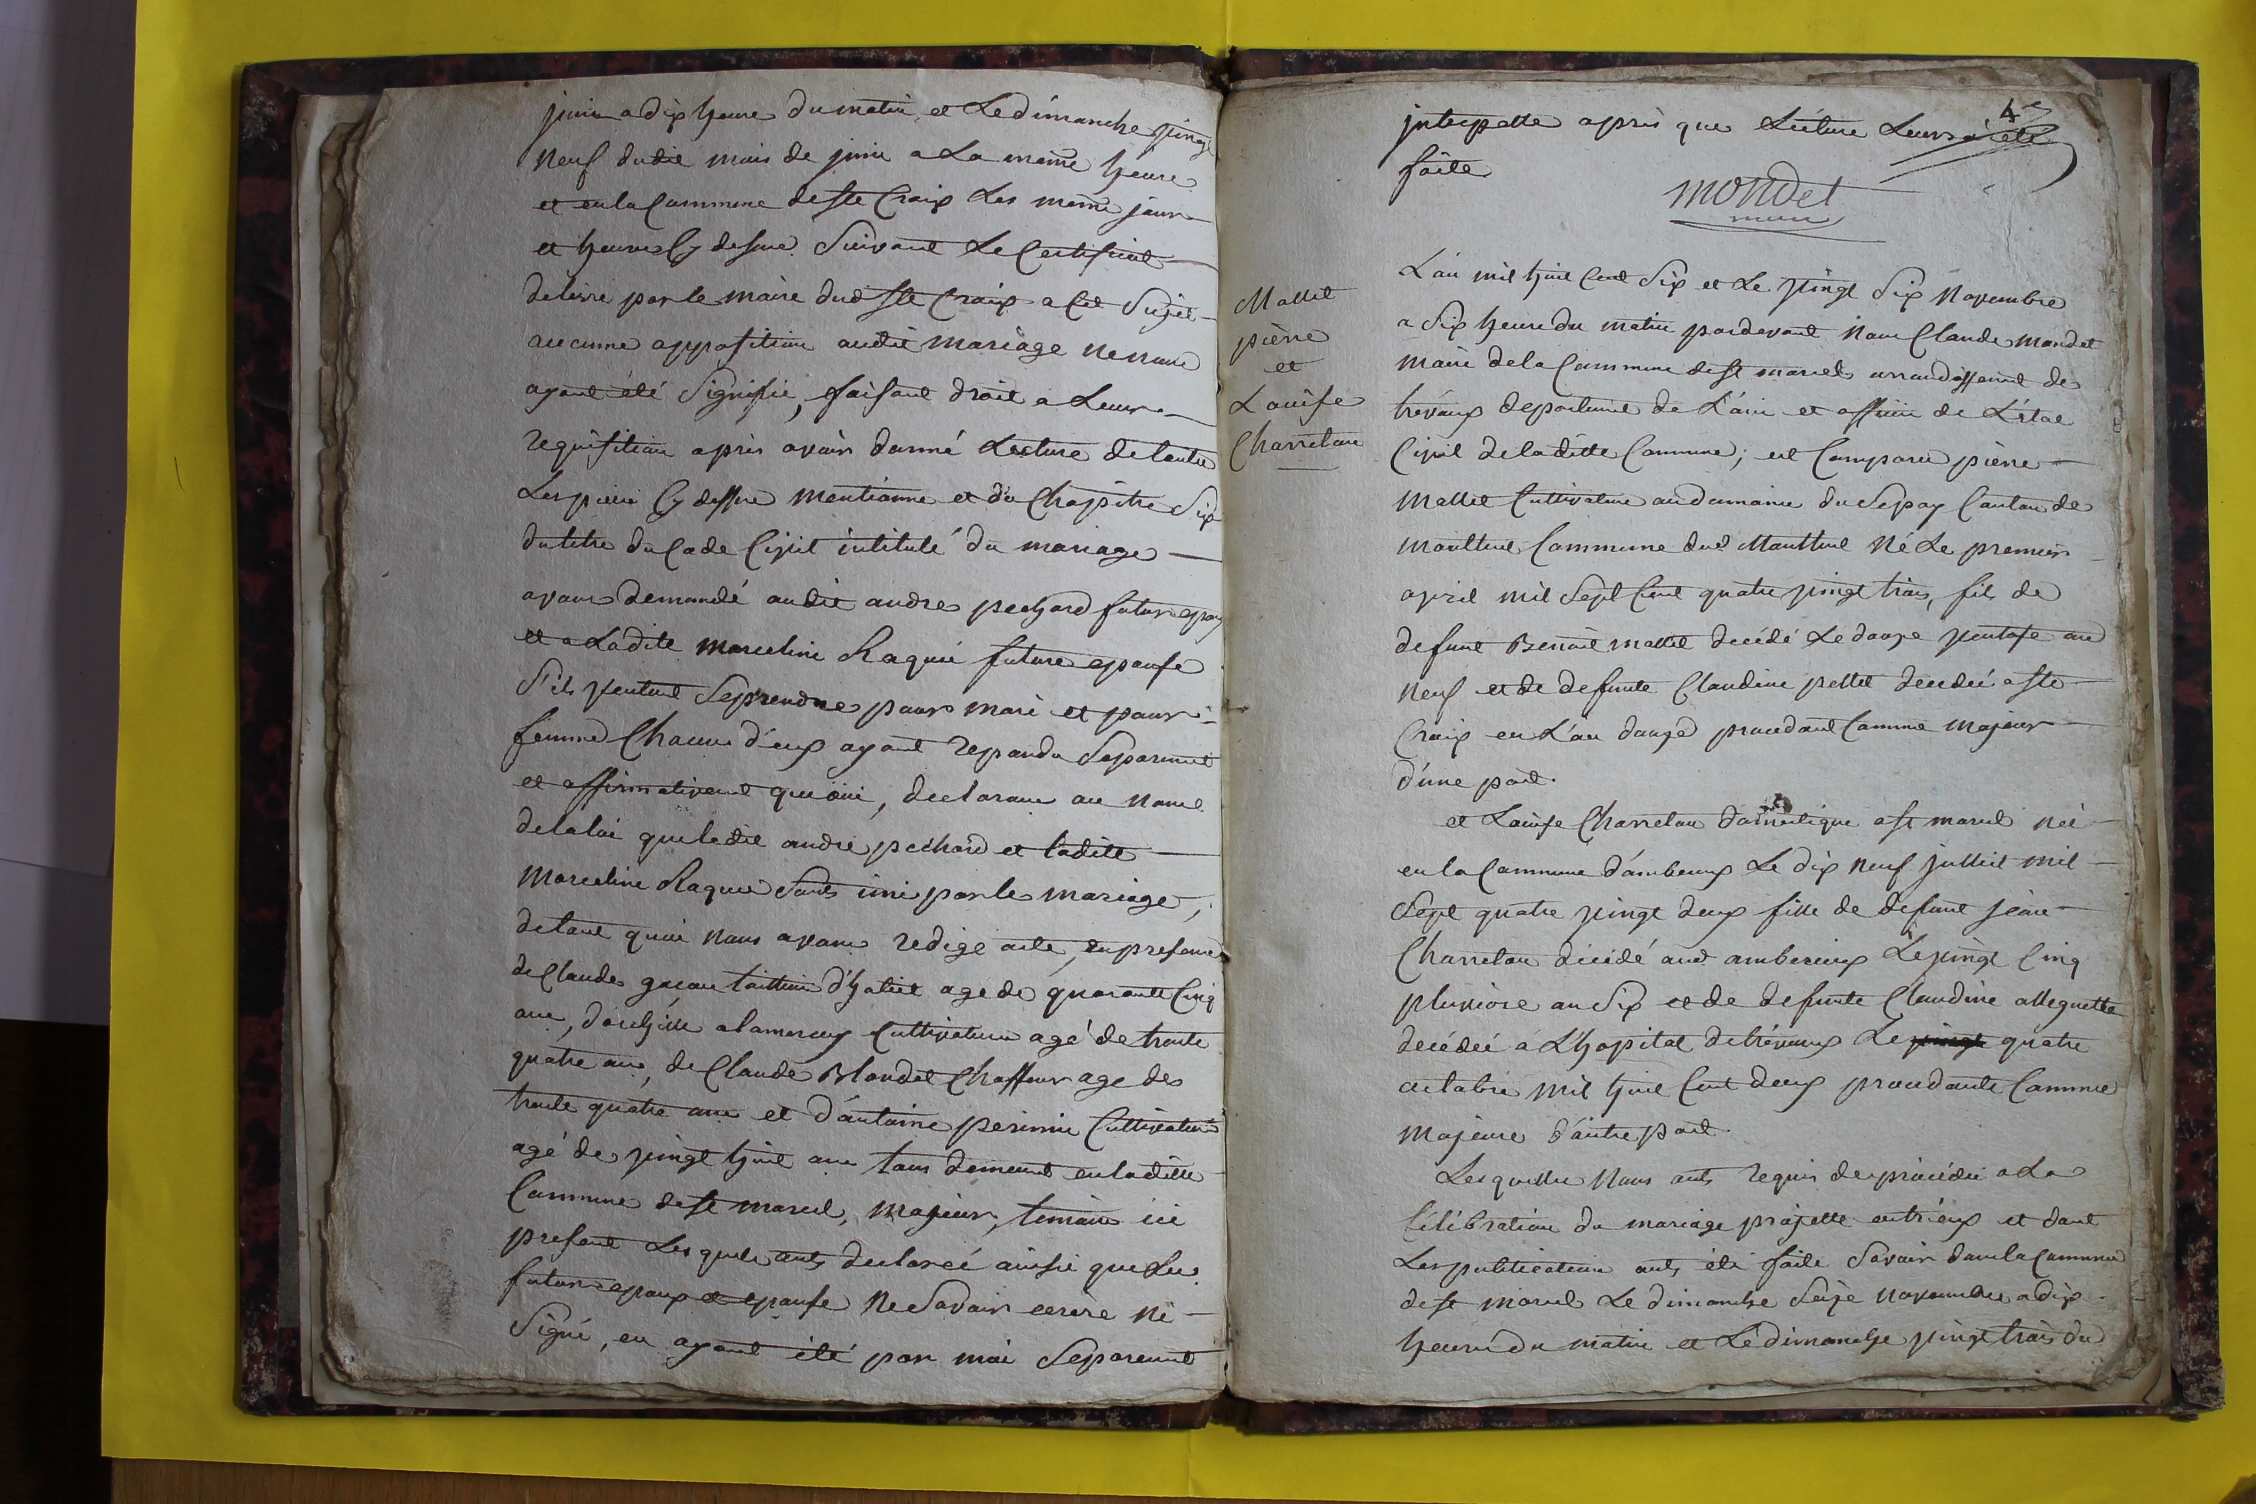 juin a dix heure du matin, et Le dimanche vingt
neuf dudit mois de juin a La même heure
et en la Commune de ste Croix Les même jour
et heures Cy dessue Suivant Le Certificat
delivre par le maire dud ste Croix a Cet Sujet
aucunne oppofition audit mariage ne nous
ayant été Signifié, faifant droit a Leur
requifition apres avoir donné Lecture de toutes
Les pieces Cy deffue mentionne et du Chapitre Six
du titre du Code Civil intitulé du mariage
avons demandé audit andre pechard futur epoux
et a Ladite marceline Raquin future epoufe
S'ils veulent Seprendre pour mari et pour
femme Chacun d'eux ayant repondu Separement
et affirmativement que oui, declarons au nom
de la loi que ledit andré pechard et ladite
marceline Raquin Sont uni par le mariage,
de tout quoi nous avons redigé acte, en prefence
de Claude tailleur d'habit age de quarante Cinq
ans, cultivateur agé de trente
quatre ans, de Claude Blondet Chaffeur age de
trente quatre ans et d'antoine perinin Cultivateur
agé de vingt huit ans tous demeurant en ladite
Commune de st marcel, majeur, temoins ici
prefent Les quels onts declaréé ainsi que Les
futurs epoux et epoufe ne Savoir ecrire ni
Signé, en ayant été par moi Separement
4e
interpelle après que Lecture Leurs a été
faite
mondet
maire
Mallet
pierre
et
Louife
Charreton
L'an mil huit Cent Six et Le vingt Six Novembre
a Six heure du matin pardevant nous Claude mondet
maire de la Commune de st marcel arrondiffement de
trévoux departement de L'ain et officier de L'état
Civil de la ditte Commune; est Comparu pierre
mallet Cultivateur au domaine du Sepay Canton de
montluel Commune dud Montluel Né Le premier
avril mil Sept Cent quatre vingt trois, fils de
defunt Benoit mallet decédé Le douze ventose an
neuf et de defunte Claudine pellet decedée a ste
Croix en L'an douze procedant Comme majeur
d'une part.
et Louife Charreton domestique a st marcel née
en la Commune d'amberieux Le dix neuf juillet mil
Sept quatre vingt deux fille de defunt jean
Charreton décédé aud amberieux Le vingt Cinq
pluviose an Six et de defunte Claudine alleguette
decédée a L'hopital de trévoux Le vingt quatre
octobre mil huit Cent deux procedante Comme
majeure d'autre part.
Lesquelles Nous onts requis de procéder a La
Célébration du mariage projetté entr'eux et dont
Les publications onts été faite Savoir dans la Commune
de st marcel Le dimanche Seize novembre a dix
heure du matin et Le dimanche vingt trois du